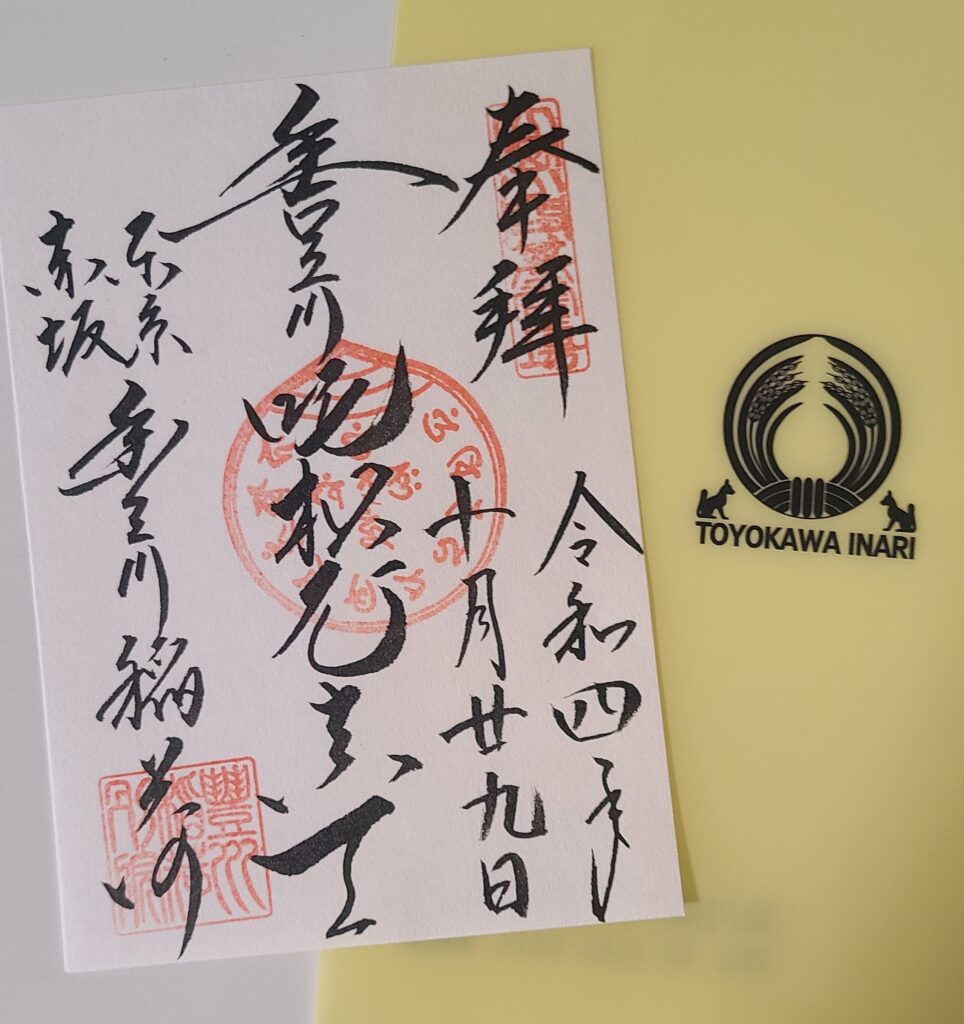 奉拝
令和四年
十月廿九日
豊川吒枳尼真天
東京
赤坂
豊川稲荷
TOYOKAWA INARI